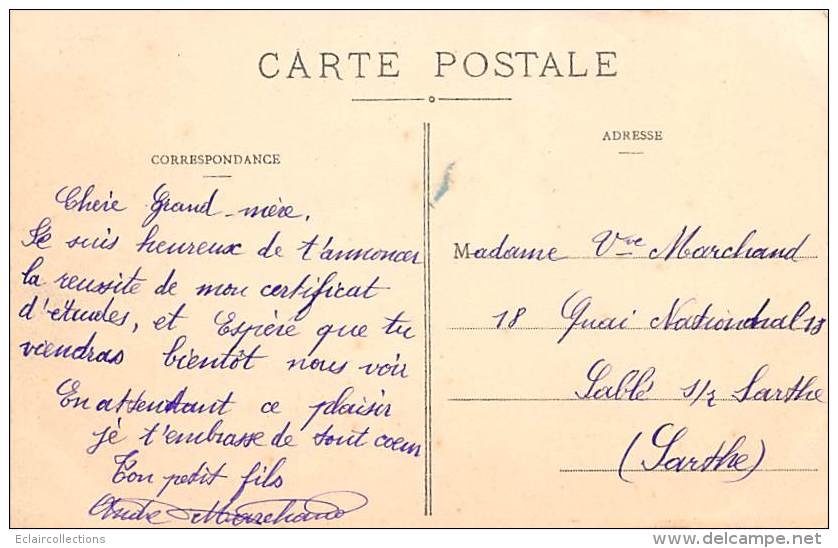 CARTE POSTALE
CORRESPONDANCE
Chère Grand-mère,
Je suis heureux de t'annoncer
la reussite de mon certificat
d'études, et Espère que tu
viendras bientôt nous voir
En attendant ce plaisir
je t'embrasse de tout coeur
Ton petit fils
André Marchand
ADRESSE
Madame Vve Marchand
18 Quai National 18
Sablé s/r Sarthe
(Sarthe)
Eclaircollections
delcampe.net